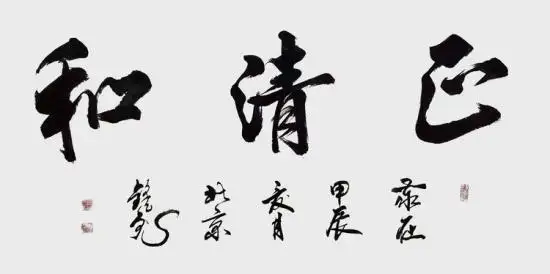 正清和
歲在
甲辰
夏月
北京